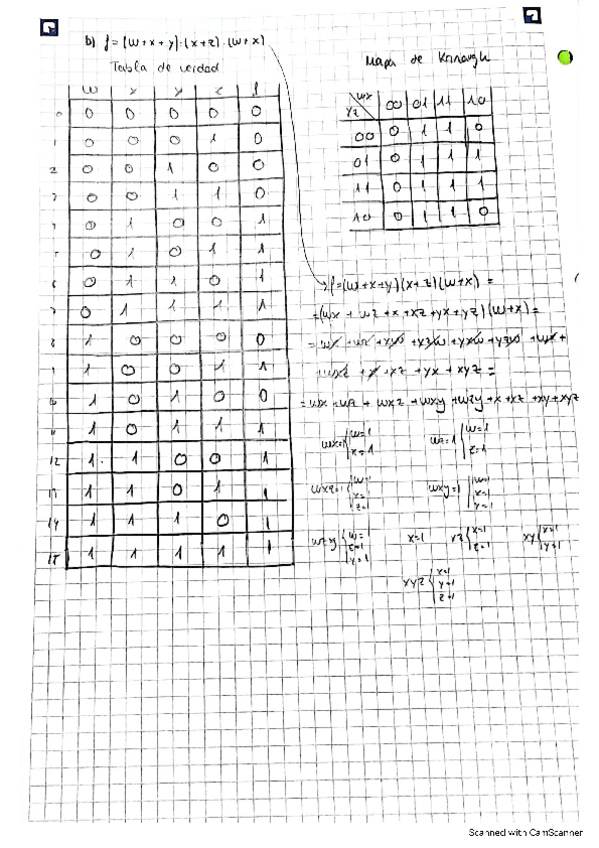 b) f = (w+x+y)·(x+z)·(w+x)
Tabla de verdad
w x y z f
0 0 0 0 0 0
1 0 0 0 1 0
2 0 0 1 0 0
3 0 0 1 1 0
4 0 1 0 0 1
5 0 1 0 1 1
6 0 1 1 0 1
7 0 1 1 1 1
8 1 0 0 0 0
9 1 0 0 1 1
10 1 0 1 0 0
11 1 0 1 1 1
12 1 1 0 0 1
13 1 1 0 1 1
14 1 1 1 0 1
15 1 1 1 1 1
Mapa de Karnaugh
wx
yz 00 01 11 10
00 0 1 1 0
01 0 1 1 1
11 0 1 1 1
10 0 1 1 0
f=(w+x+y)(x+z)(w+x) =
=(wx + wz + x + xz + yx + yz)(w+x) =
+ xz + yx + xyz =
= wx + wz + wxz + wxy + wzy + x + xz + xy + xyz
wx=1 { w=1 x=1
wz=1 { w=1 z=1
wxz=1 { w=1 x=1 z=1
wxy=1 { w=1 x=1 y=1
wzy { w=1 z=1 y=1
x=1
xz { x=1 z=1
xy { x=1 y=1
xyz { x=1 y=1 z=1
Scanned with CamScanner